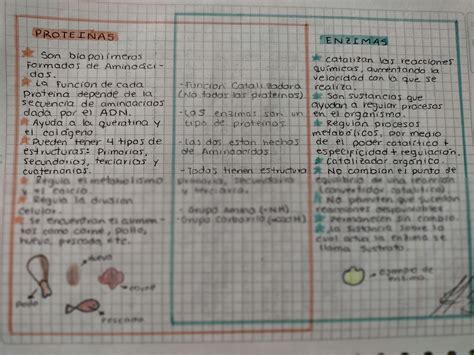 PROTEÍNAS
Son biopolímeros
Formados de Aminoáci-
dos.
La Función de cada
Proteína depende de la
secuencia de aminoácidos
dada por el ADN.
Ayuda a la queratina y
el colágeno.
Pueden tener 4 tipos de
estructuras: Primarias,
secundarias, terciarias y
cuaternarias.
Regula el metabolismo
y el calcio.
Regula la división
celular.
Se encuentran en alimen-
tos como carne, pollo,
huevo, pescado, etc.
huevo
carne
Pollo
Pescado
-Función Catalizadora
(No todas las proteínas).
-Las enzimas son un
tipo de proteínas.
-Las dos están hechas
de Aminoácidos.
-Todas tienen estructura
primaria, secundaria
-Grupo Amino
-Grupo Carboxilo
ENZIMAS
Catalizan las reacciones
químicas, aumentando la
velocidad con la que se
realiza.
Son sustancias que
ayudan a regular procesos
en el organismo.
Regulan procesos
metabólicos, por medio
de el poder catalítico +
especificidad + regulación.
Catalizador orgánico.
No cambian el punto de
equilibrio de una reacción
(convertidor catalítico)
No permiten que sucedan
reacciones desfavorables
Permanecen sin cambio.
la sustancia sobre la
cual actúa la enzima se
llama sustrato.
ejemplo de
enzima.